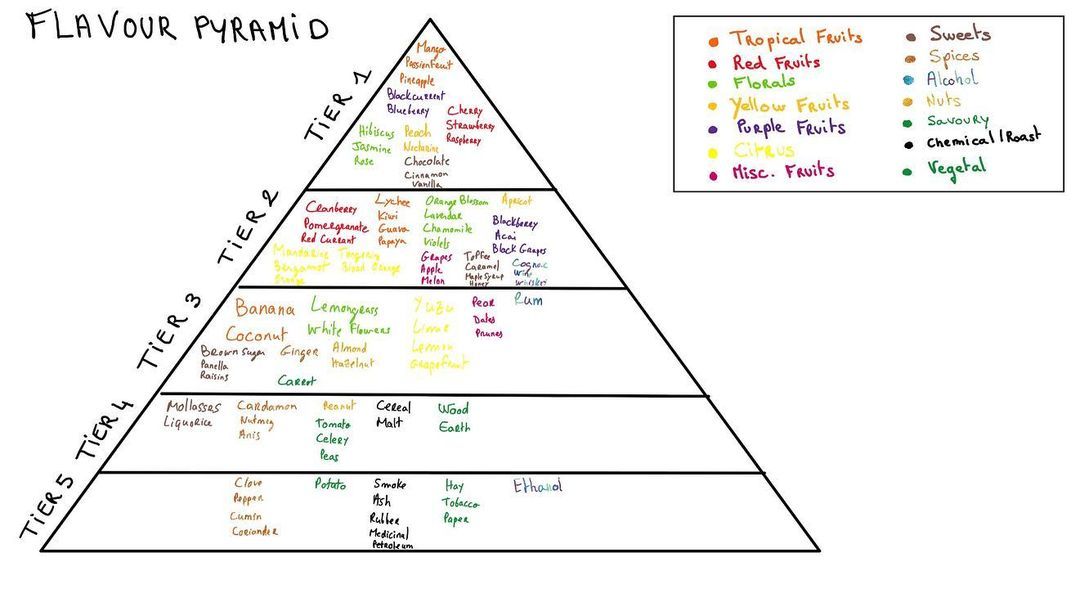 FLAVOUR PYRAMID
Tropical Fruits
Red Fruits
Florals
Yellow Fruits
Purple Fruits
Citrus
Misc. Fruits
Sweets
Spices
Alcohol
Nuts
Savoury
Chemical/Roast
Vegetal
TIER 1
Mango
Passionfruit
Pineapple
Blackcurrent
Blueberry
Cherry
Strawberry
Raspberry
Hibiscus
Jasmine
Rose
Peach
Nectarine
Chocolate
Cinnamon
Vanilla
TIER 2
Cranberry
Pomegranate
Red Currant
Lychee
Kiwi
Guava
Papaya
Orange Blossom
Lavendar
Chamomile
Violets
Apricot
Blackberry
Acai
Black Grapes
Mandarine Tangerine
Bergamot Blood Orange
Orange
Grapes
Apple
Melon
Toffee
Caramel
Maple Syrup
Honey
Cognac
Wine
Whiskey
TIER 3
Banana
Coconut
Lemongrass
White Flowers
Yuzu
Lime
Lemon
Grapefruit
Pear
Dates
Prunes
Rum
Brown Sugar
Panella
Raisins
Ginger
Almond
Hazelnut
Carrot
TIER 4
Mollasses
Liquorice
Cardamon
Nutmeg
Anis
Peanut
Tomato
Celery
Peas
Cereal
Malt
Wood
Earth
TIER 5
Clove
Pepper
Cumin
Coriander
Potato
Smoke
Ash
Rubber
Medicinal
Petroleum
Hay
Tobacco
Paper
Ethanol